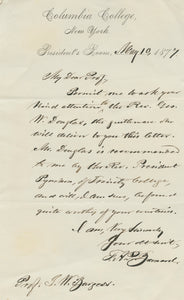 Columbia College,
New York.
President's Room, May 10, 1877
My dear Prof.,
Permit me to ask your
kind attention to the Rev. Geo.
W. Douglas, the gentleman who
will deliver to you this letter.
Mr. Douglas is recommended
to me by the Rev. President
Pynchon of Trinity College
and will, I am sure, be found
quite worthy of your
I am, very sincerely
Your obt. servt.
F. A. P. Barnard.
Prof. J. W. Burgess.